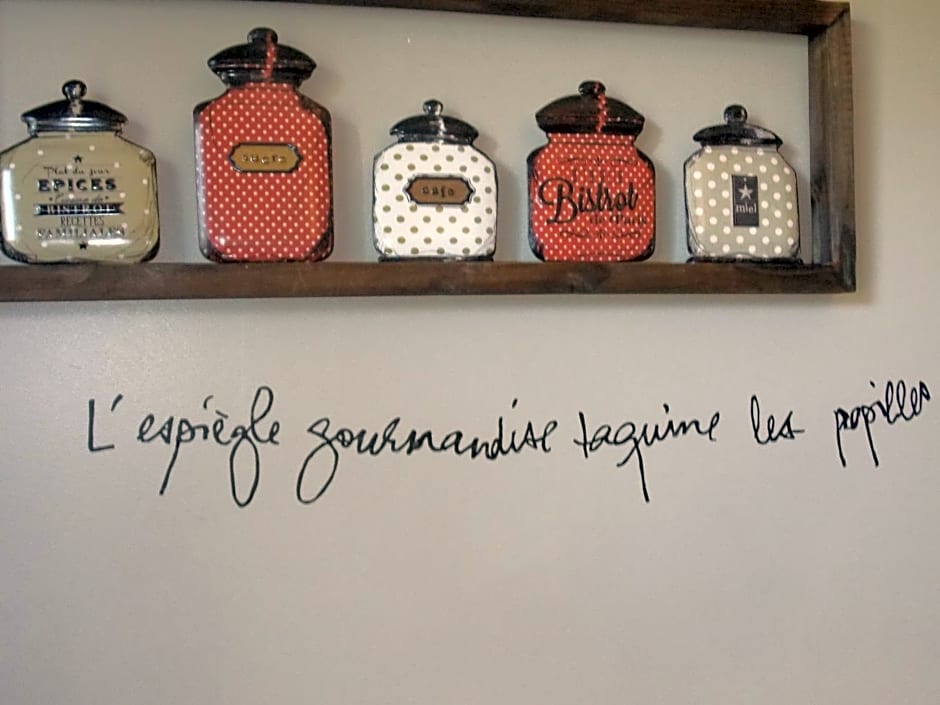 Plat du jour
EPICES
BISTROT
RECETTES
FAMILIALES
sucre
café
Bistrot
de Paris
miel
L'espiègle gourmandise taquine les papilles